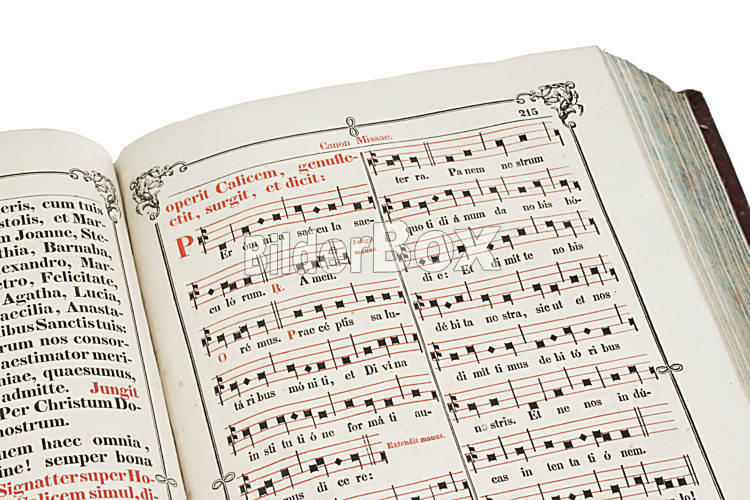 eris, cum tuis
stolis, et Mar
m Joanne, Ste
thia, Barnaba,
lexandro, Mar-
etro, Felicitate,
Agatha, Lucia,
aecilia, Anasta-
ibus Sanctistuis:
rum nos consor-
aestimator meri-
niae, quaesumus,
admitte. Jungit
Per Christum Do-
nostrum.
uem haec omnia,
ine! semper bona
Signatter super Ho-
Calicem simul, di-
Canon Missae. 215
operit Calicem, genufle-
ctit, surgit, et dicit:
Per om ni a saé cu la sae-
cu ló rum. R. A men. Jungit manus.
O ré mus. Prae cé ptis sa lu-
tá ri bus mó ni ti, et Di vi na
in sti tu ti ó ne for má ti au-
Extendit manus.
di ce re:
ter ra. Pa nem no strum
quo ti di á num da no bis hó-
di e: Et di mit te no bis
dé bi ta no stra, sic ut et nos
di mit ti mus de bi tó ri bus
no stris. Et ne nos in dú-
cas in ten ta ti ó nem.
BilderBox